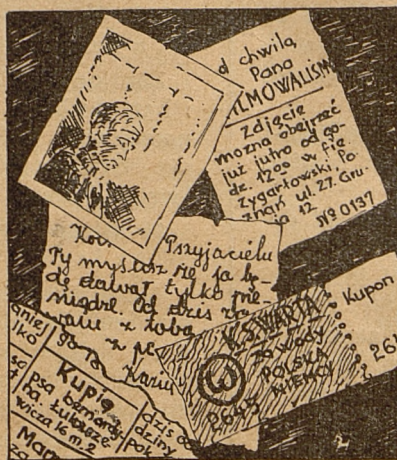 d chwilą
Pana
ILMOWALIŚM
zdjęcie
można obejrzeć
już jutro od go-
dz. 12⁰⁰ w fie
Zygartowski Po-
znań ul. 27. Gru-
ia 12
№ 0137
Przyjacielu
Ty myślisz że ja bę-
dę dawał tylko pie-
niądze. Od dziś zry-
wam z tobą
Kupon
K.S WARTA
zawody
POLSKA
NIEMCY
2645
264
Kupię
psa bernardy-
na. Łukasze-
wicza 16 m. 2
dziś
dziny
pok